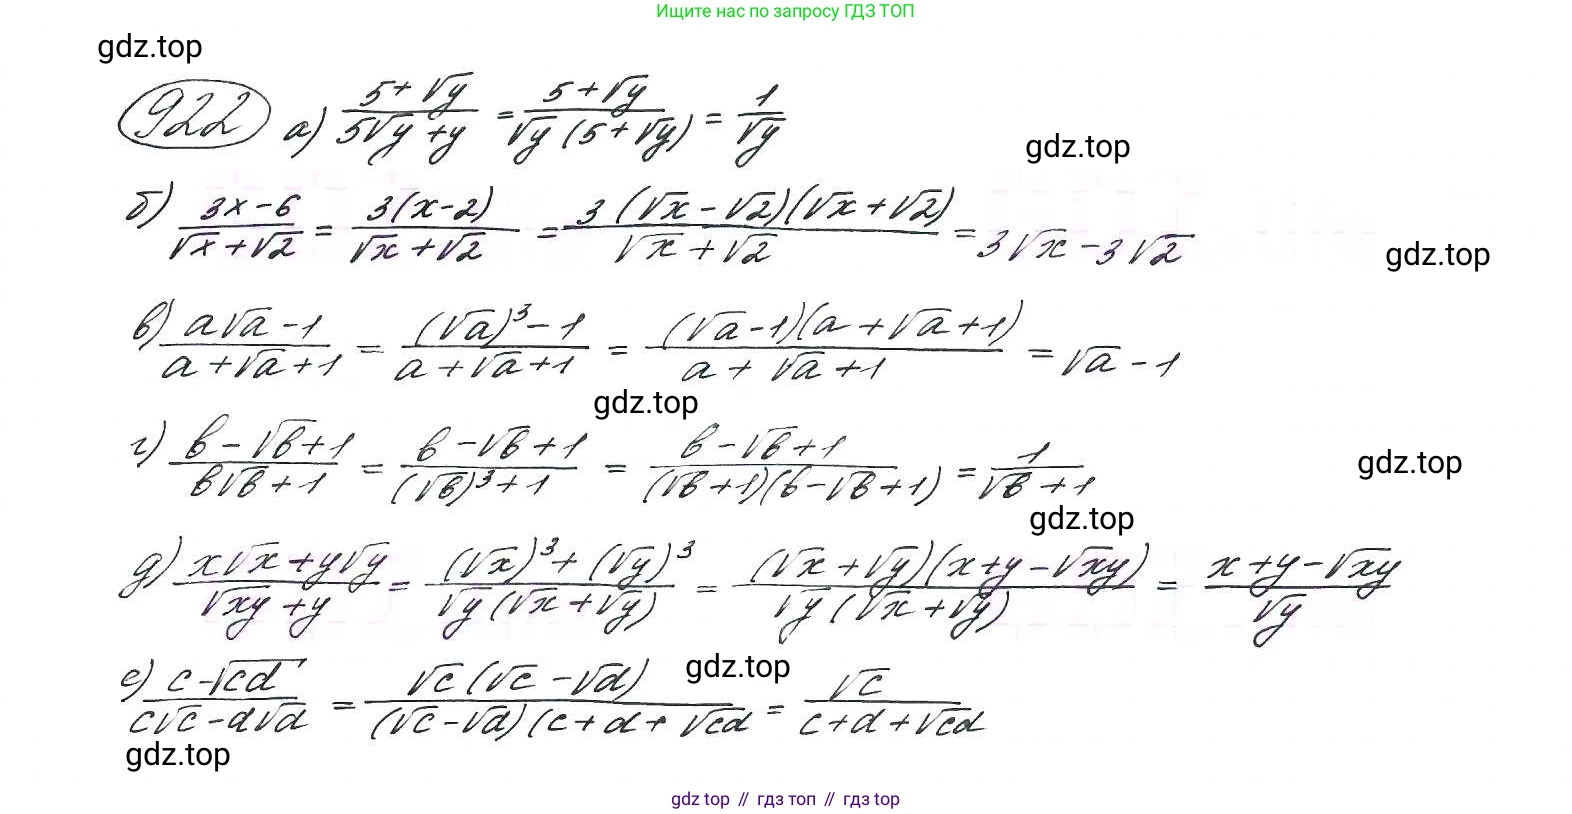 Ищите нас по запросу ГДЗ ТОП
gdz.top
922 а) (5+√y)/(5√y+y) = (5+√y)/(√y(5+√y)) = 1/√y
gdz.top
б) (3x-6)/(√x+√2) = 3(x-2)/(√x+√2) = 3(√x-√2)(√x+√2)/(√x+√2) = 3√x-3√2
gdz.top
в) (a√a-1)/(a+√a+1) = ((√a)³-1)/(a+√a+1) = (√a-1)(a+√a+1)/(a+√a+1) = √a-1
gdz.top
г) (в-√в+1)/(в√в+1) = (в-√в+1)/((√в)³+1) = (в-√в+1)/((√в+1)(в-√в+1)) = 1/(√в+1)
gdz.top
gdz.top
д) (x√x+y√y)/(√xy+y) = ((√x)³+(√y)³)/(√y(√x+√y)) = (√x+√y)(x+y-√xy)/(√y(√x+√y)) = (x+y-√xy)/√y
gdz.top
е) (c-√cd)/(c√c-d√d) = √c(√c-√d)/((√c-√d)(c+d+√cd) = √c/(c+d+√cd)
gdz.top
gdz top // гдз топ // гдз top